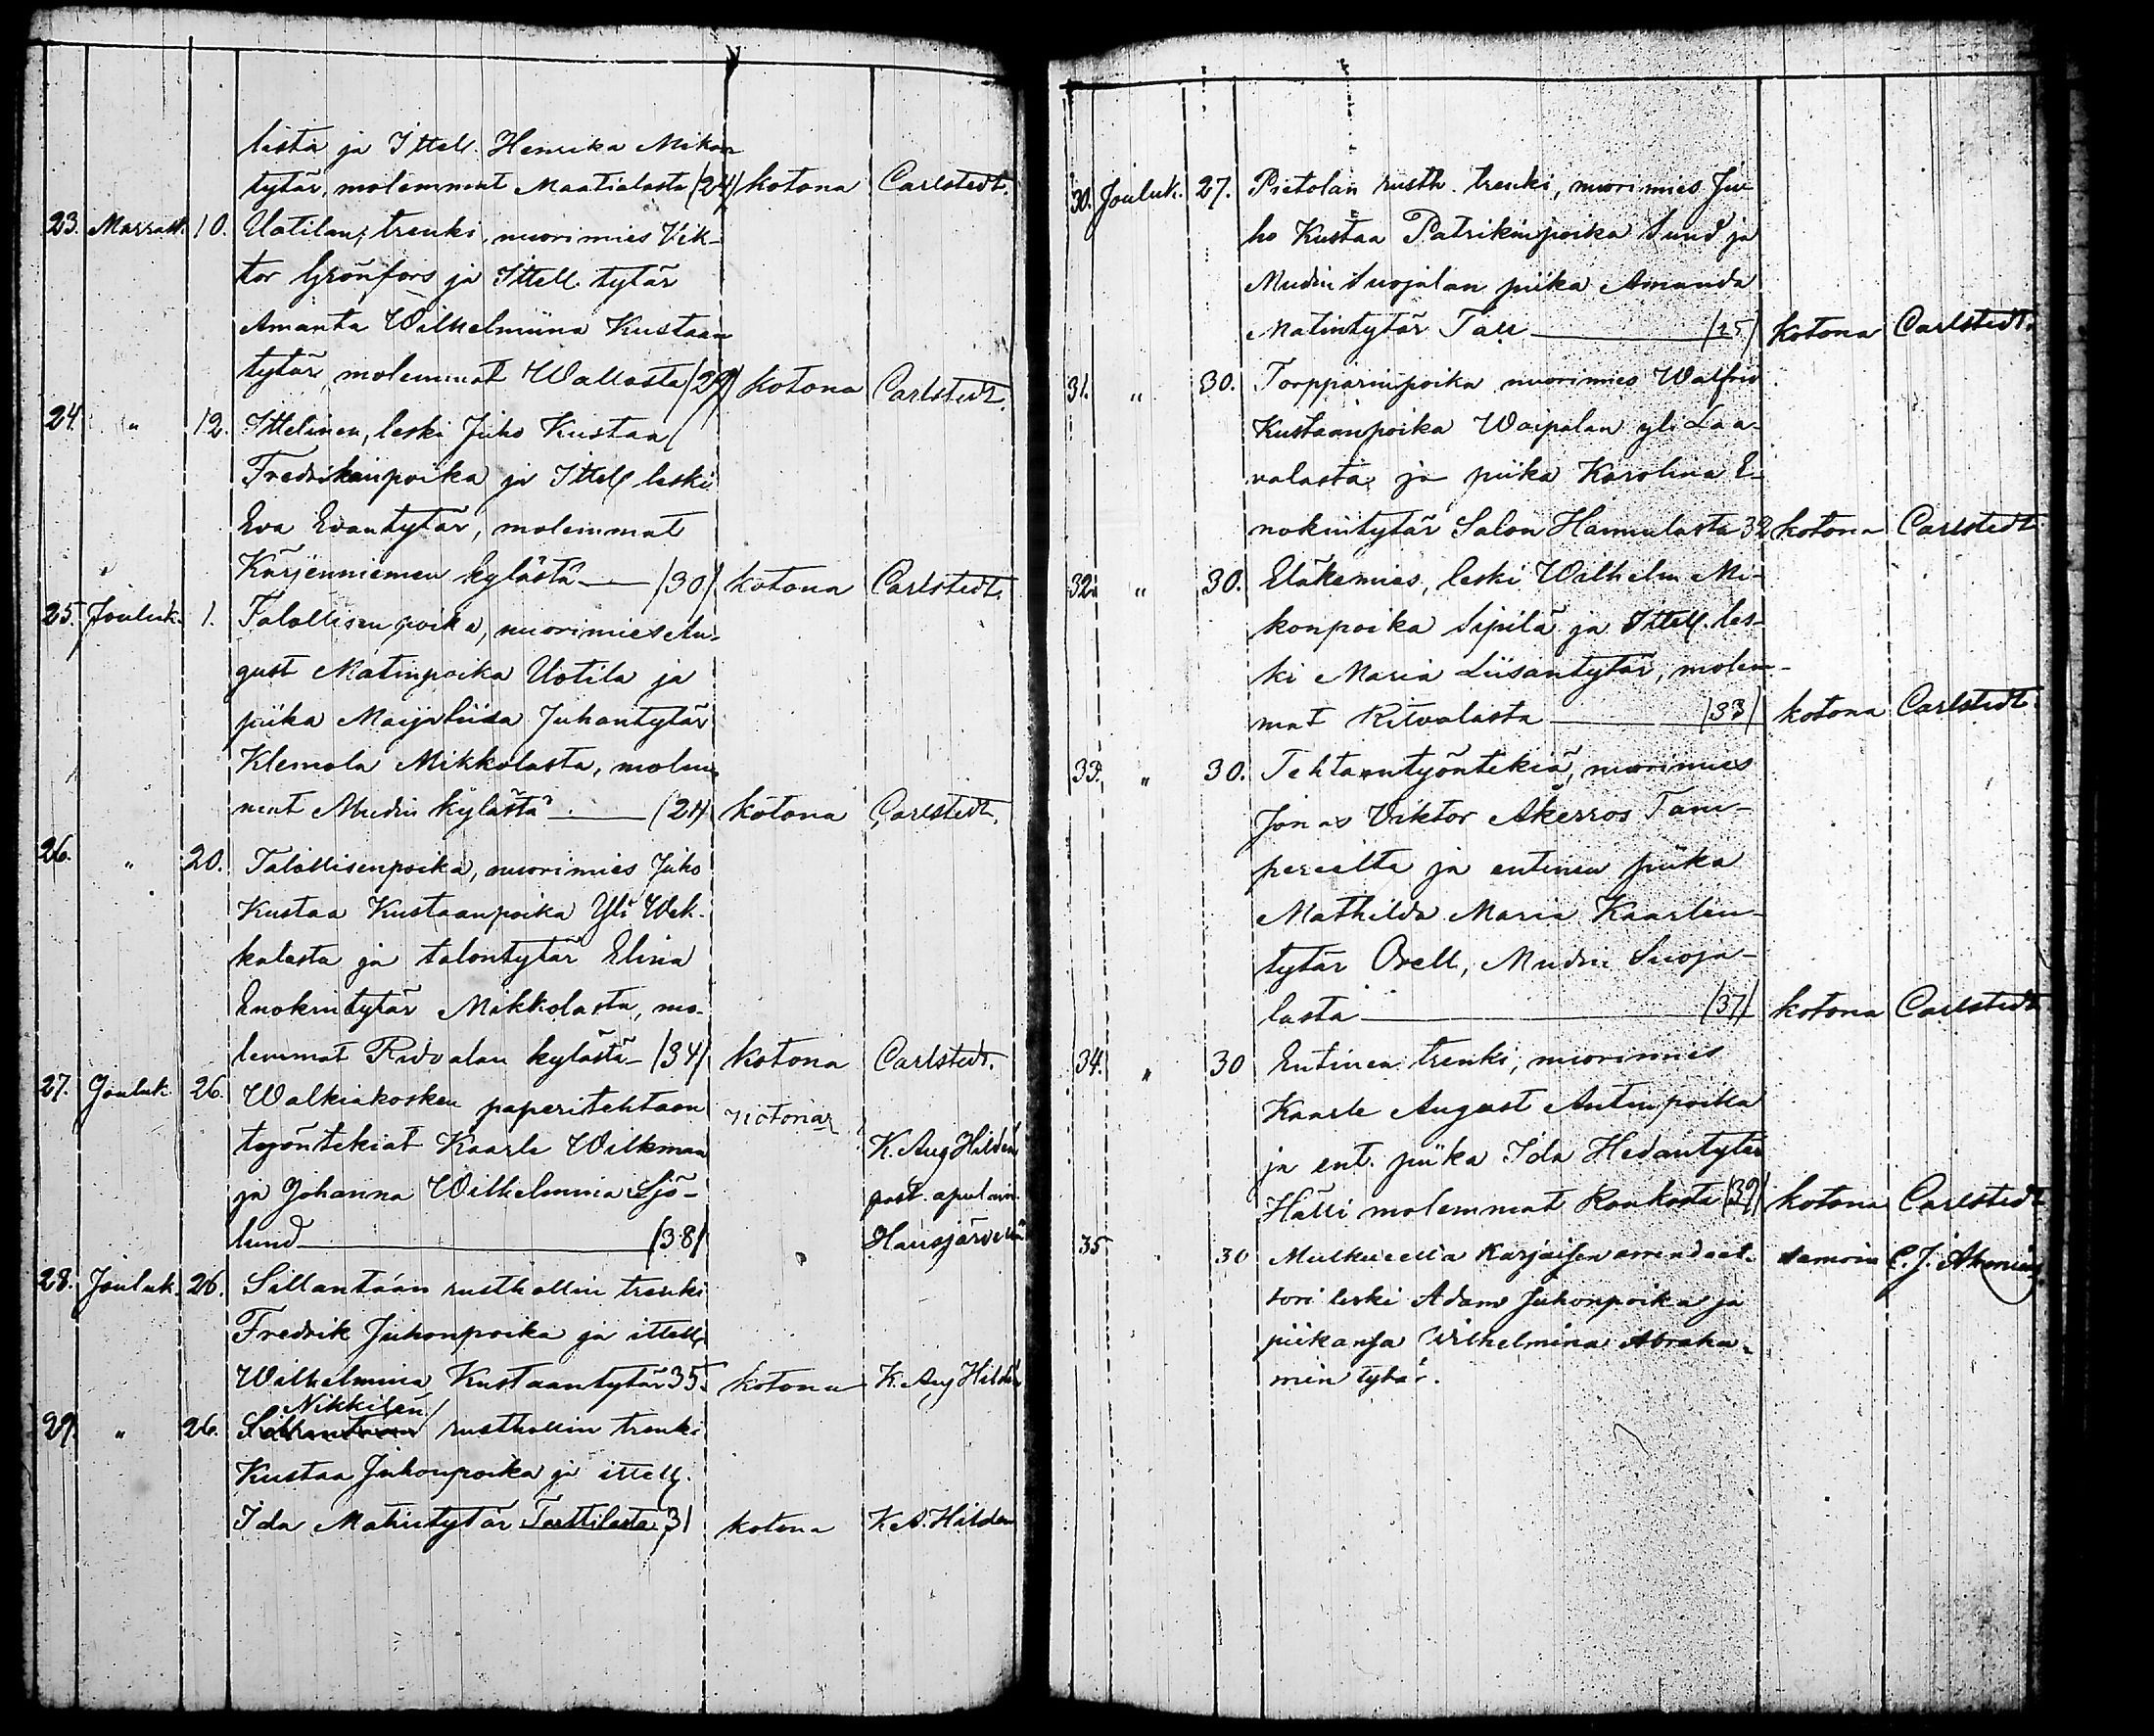 lasta ja Ittell. Henrika Mikon
tytär, molemmat Maatialasta (24) kotona Carlstedt.
23. Marrask. 10. Uotilan trenki, nuorimies Vik-
tor Grönfors ja Ittell. tytär
Amanta Wilhelmiina Kustaan
tytär molemmat Wallosta (29) kotona Carlstedt.
24. " 12. Ittelinen, leski Juho Kustaa
Fredrikinpoika ja Ittell leski
Eva Evantytär, molemmat
Kärjenniemen kylästä — (30) kotona Carlstedt.
25. Jouluk. 1. Talollisen poika, nuorimies Au-
gust Matinpoika Uotila ja
piika Maija Liisa Juhantytär
Klemola Mikkolasta, molem-
mat Mudin kylästä — (24) kotona Carlstedt.
26. " 20. Talollisenpoika, nuorimies Juho
Kustaa Kustaanpoika Yli Wek-
kalasta ja talontytär Elina
Enokintytär Mikkolasta, mo-
lemmat Ridvalan kylästä — (34) kotona Carlstedt.
27. Jouluk. 26. Walkiakosken paperitehtaan
työntekiät Kaarle Wilkman kotona K. Aug Hildén
ja Johanna Wilhelmina Sjö- past. apulain.
lund — (38) Hausjärvellä
28. Jouluk. 26. Sillantaan rusthollin trenki
Fredrik Juhonpoika ja ittell.
Wilhelmina Kustaantytär 35. kotona K. Aug Hildén
Nikkilän
29. " 26. Sillantaan rusthollin trenki
Kustaa Juhonpoika ja ittell.
Ida Matintytär Tarttilasta 31 kotona K. A. Hildén
30. Jouluk. 27. Pietolan rusth. trenki, nuorimies Ju-
ho Kustaa Patrikinpoika Sund ja
Mudin Suojalan piika Amanda
Matintytär — (25) kotona Carlstedt.
31. " 30. Torpparinpoika nuorimies Walfrid
Kustaanpoika Waipalan yli Laa-
valasta ja piika Karolina E-
nokintytär Salon Hannulasta 32 kotona Carlstedt
32. " 30. Eläkemies, leski Wilhelm Mi-
konpoika Sipilä ja Ittell. les-
ki Maria Liisantytär, molem-
mat Ritvalasta — (33) kotona Carlstedt.
33. " 30. Tehtaantyöntekiä, nuorimies
Jonas Viktor Akerros Tam-
pereelta ja entinen piika
Mathilda Maria Kaarlen-
tytär Orell, Mudin Suoja-
lasta — (37) kotona Carlstedt
34. " 30 Entinen trenki, nuorimies
Kaarle August Antinpoika
ja ent. piika Ida Hedantytär
Hälli molemmat Raukosta (39) kotona Carlstedt
35 30 Karjaisen arrendaat- samoin C. J.
tori leski Adam Juhonpoika ja
piikansa Wilhelmina Abraha-
min tytär.